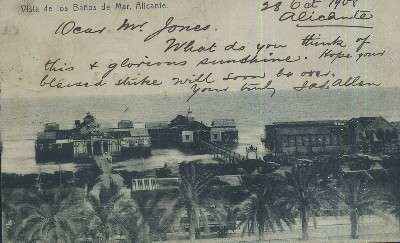 Vista de los Baños de Mar, Alicante.
28 Oct 1908
Alicante
Dear Mr. Jones.
What do you think of
this & glorious sunshine. Hope your
blessed strike will soon be over.
Your truly Jas. Allan